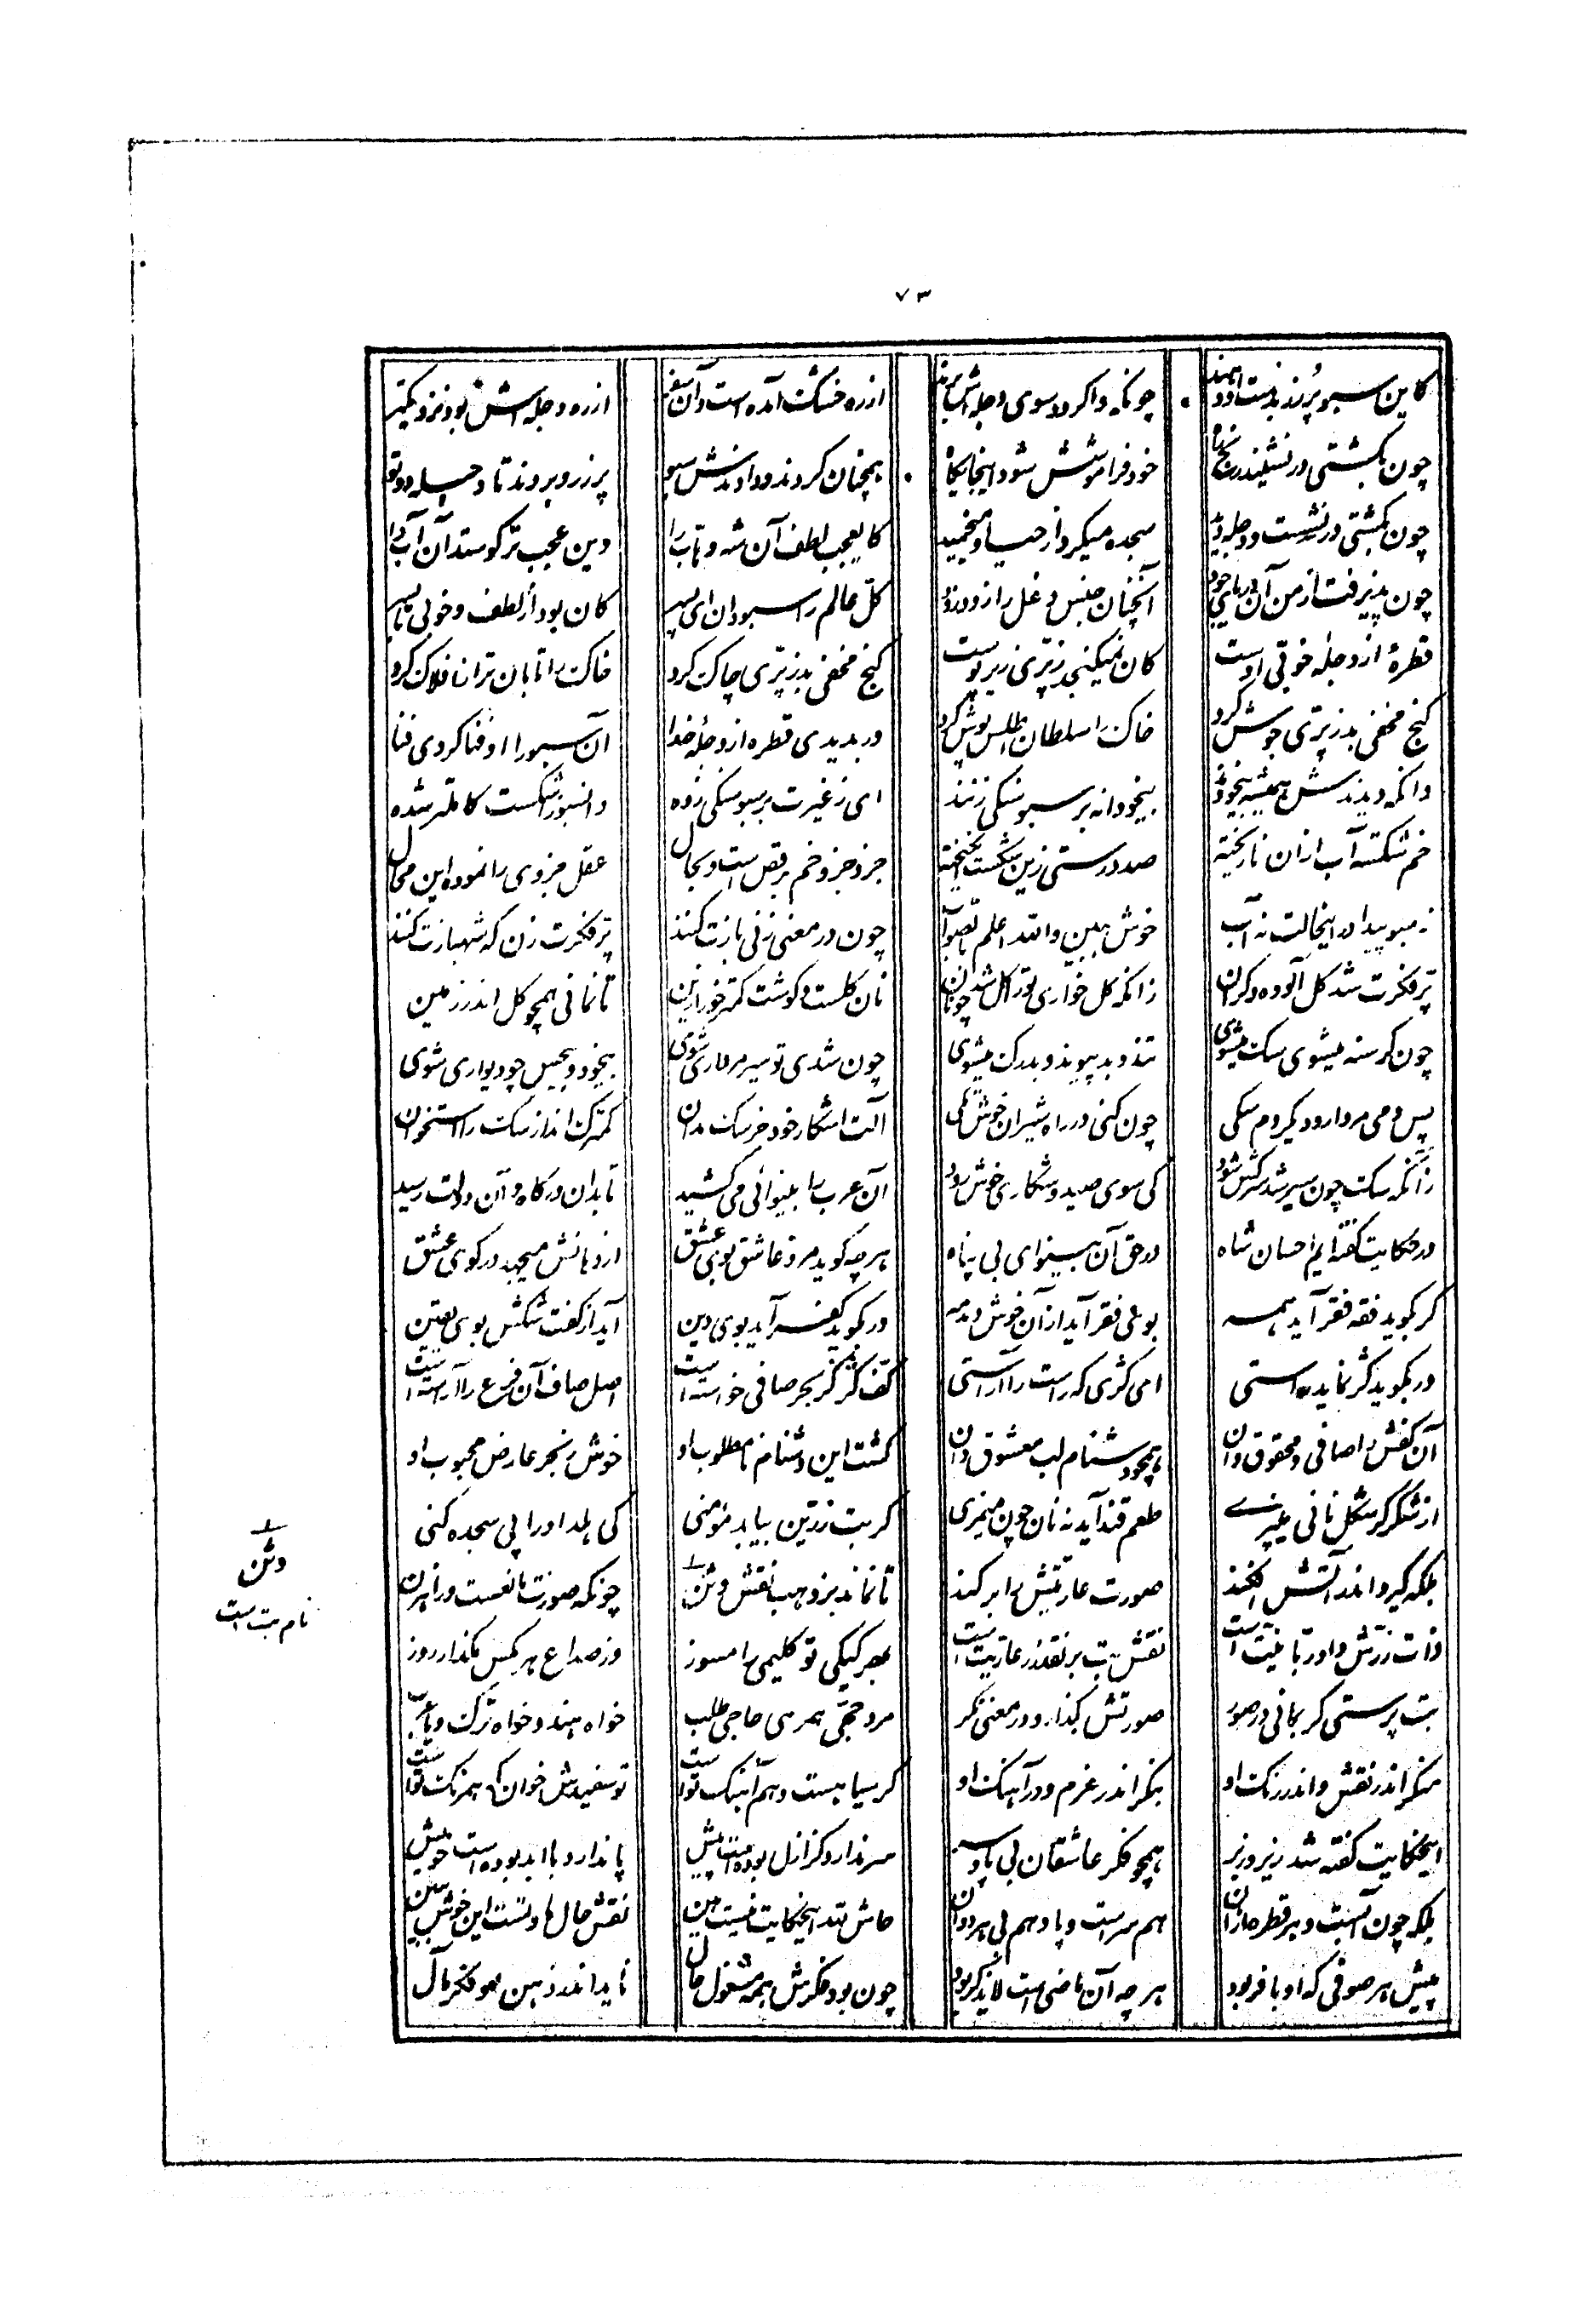 ۷۳
کاین سبو پر زر بدست او دهید چونکه واگردد سوی دجله‌اش برید از ره خشک آمده است و آن سفر از ره دجله‌اش بود نزدیکتر
چون بکشتی در نشیند رنج راه خود فراموشش شود اینجایگاه همچنان کردند و دادندش سبو پر زر و بردند تا دجله دو تو
چون بکشتی در نشست و دجله دید سجده میکرد از حیا و میخمید کای عجب لطف آن شه وهاب را وین عجب‌تر کو ستد آن آب را
چون پذیرفت از من آن دریای جود آنچنان جنس دغل را زود زود کل عالم را سبو دان ای پسر کان بود از لطف و خوبی تا بسر
قطرهٔ از دجلهٔ خوبی اوست کان نمیگنجد ز پری زیر پوست گنج مخفی بد ز پری چاک کرد خاک را تابان‌تر از افلاک کرد
گنج مخفی بد ز پری جوش کرد خاک را سلطان اطلس پوش کرد ور بدیدی قطره از دجله خدا آن سبو را او فنا کردی فنا
وانکه دیدندش همیشه بیخودند بیخودانه بر سبو سنگی زدند ای ز غیرت بر سبو سنگی زده وان سبو ز اشکست کاملتر شده
خم شکسته آب ازان ناریخته صد درستی زین شکست انگیخته جزو جزو خم برقص است و بحال عقل جزوی را نموده این محال
نه سبو پیدا درین حالت نه آب خوش ببین والله اعلم بالصواب چون در معنی زنی بازت کنند پر فکرت زن که شهبازت کنند
پر فکرت شد گل آلوده و گران زانکه گل خواری ترا گل شد چو نان نان گلست و گوشت کمتر خور ازین تا نمانی همچو گل اندر زمین
چون گرسنه میشوی سگ میشوی تند و بد پیوند و بدرگ میشوی چون شدی تو سیر مرداری شوی بیخود و بیحس چو دیواری شوی
پس دمی مردار و دیگر دم سگی چون کنی در راه شیران خوش تگی آلت اشکار خود جز سگ مدان کمترک انداز سگ را استخوان
زانکه سگ چون سیر شد سرکش شود کی سوی صید و شکاری خوش رود آن عرب را بینوائی می کشید تا بدان درگاه و آن دولت رسید
در حکایت گفته‌ایم احسان شاه در حق آن بینوای بی پناه هر چه گوید مرد عاشق بوی عشق از دهانش میجهد در کوی عشق
گر بگوید فقه فقر آید همه بوی فقر آید از آن خوش دمدمه ور بگوید کفر آید بوی دین آید از گفت شکش بوی یقین
ور بگوید کژ نماید راستی ای کژی که راست را آراستی کف کژ کز بحر صافی خواسته است اصل صاف آن فرع را آراسته است
آن کفش را صافی و محقوق دان همچو دشنام لب معشوق دان گشت این دشنام نامطلوب او خوش ز بهر عارض محبوب او
از شکر گر شکل نانی میپزی طعم قند آید نه نان چون میمزی گر بت زرین بیابد مؤمنی کی هلد او را پی سجده کنی
بلکه گیرد اندر آتش افکند صورت عاریتش را بر کند تا نماند بر ذهب نقش وثن چونکه صورت مانعست و راهزن
ذات زرش داد ربانیت است نقش بت بر نقد زر عاریت است بهر کیکی تو گلیمی را مسوز وز صداع هر مگس مگذار روز
بت پرستی گر بمانی در صور صورتش بگذار و در معنی نگر مرد حجی همره حاجی طلب خواه هندو خواه ترک و یا عرب
منگر اندر نقش و اندر رنگ او بنگر اندر عزم و در آهنگ او گر سیاهست و هم آهنگ توست تو سفیدش خوان که همرنگ توست
این حکایت گفته شد زیر و زبر همچو فکر عاشقان بی پا و سر سر ندارد کز ازل بوده است پیش پا ندارد با ابد بوده است خویش
بلکه چون آبست و هر قطره ازان هم سر است و پا و هم بی هر دوان حاش لله این حکایت نیست هین نقد حال ما و تست این خوش ببین
پیش هر صوفی که او با فر بود هر چه آن ماضی است لا یذکر بود چون بود فکرش همه مشغول حال ناید اندر ذهن او فکر مآل
وثن
نام بت است